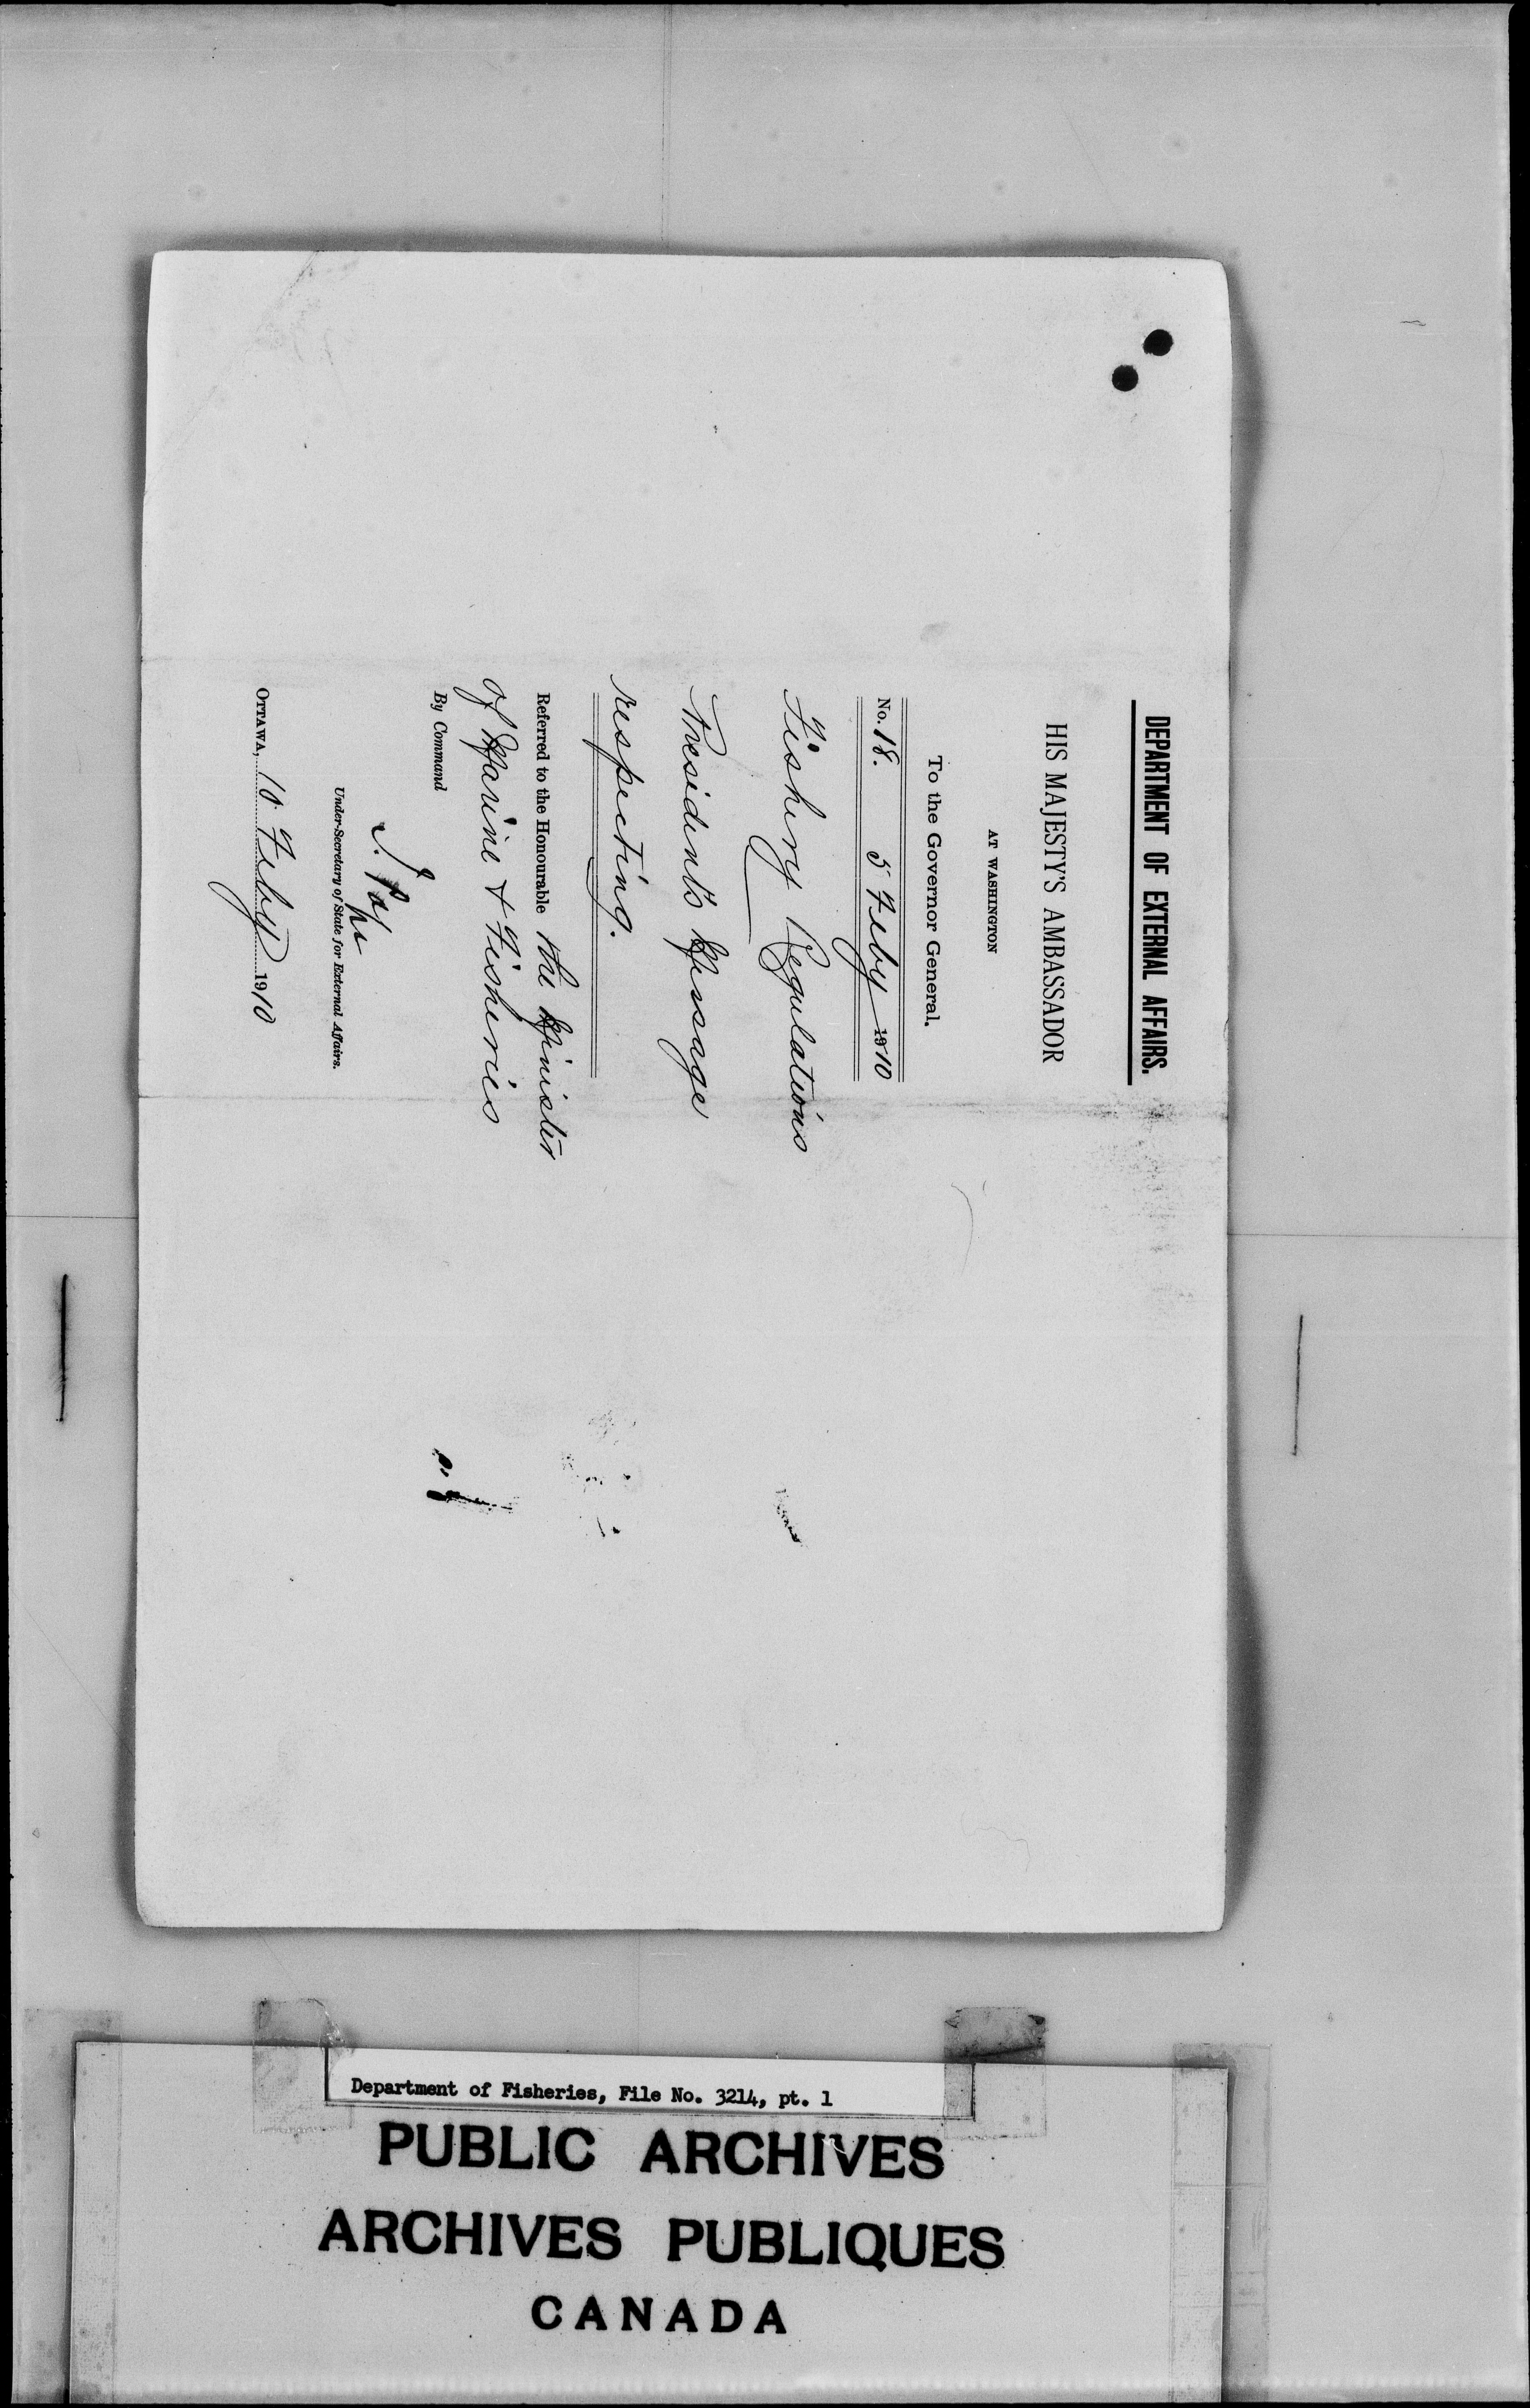 DEPARTMENT OF EXTERNAL AFFAIRS.
HIS MAJESTY'S AMBASSADOR
AT WASHINGTON
To the Governor General.
No. 18. 5 Feby 1910
Fishery Regulations
President's Message
respecting.
Referred to the Honourable the Minister
of Marine & Fisheries
By Command
J. Pope
Under-Secretary of State for External Affairs.
OTTAWA, 10 Feby 1910
Department of Fisheries, File No. 3214, pt. 1
PUBLIC ARCHIVES
ARCHIVES PUBLIQUES
CANADA